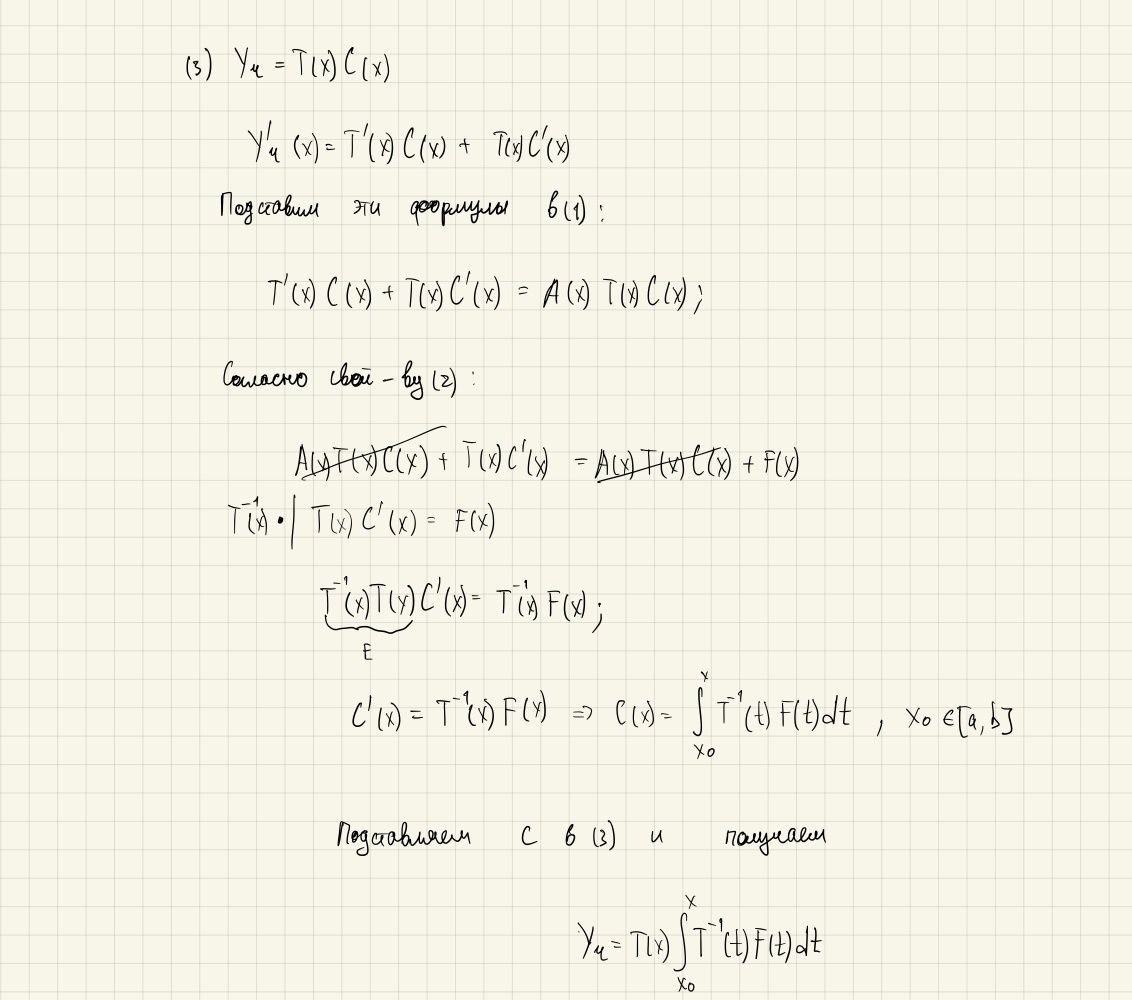 (3) Yч = T(x) C(x)
Y'ч (x) = T'(x) C(x) + T(x) C'(x)
Подставим эти формулы в (1) :
T'(x) C(x) + T(x) C'(x) = A(x) T(x) C(x) ;
Согласно свой-ву (2) :
A(x) T(x) C(x) + T(x) C'(x) = A(x) T(x) C(x) + F(x)
T⁻¹(x) · | T(x) C'(x) = F(x)
T⁻¹(x) T(x) C'(x) = T⁻¹(x) F(x) ;
E
C'(x) = T⁻¹(x) F(x) => C(x) = ∫ₓ₀ˣ T⁻¹(t) F(t) dt , x₀ ∈ [a, b]
Подставляем C в (3) и получаем
Yч = T(x) ∫ₓ₀ˣ T⁻¹(t) F(t) dt